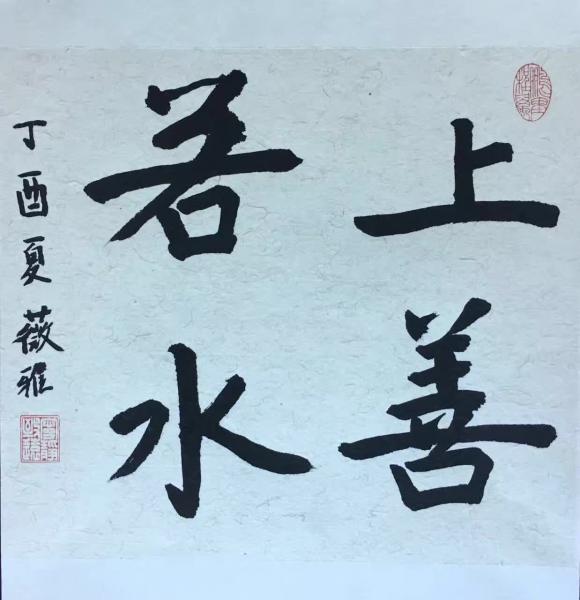 上善
若水
丁酉夏薇雅